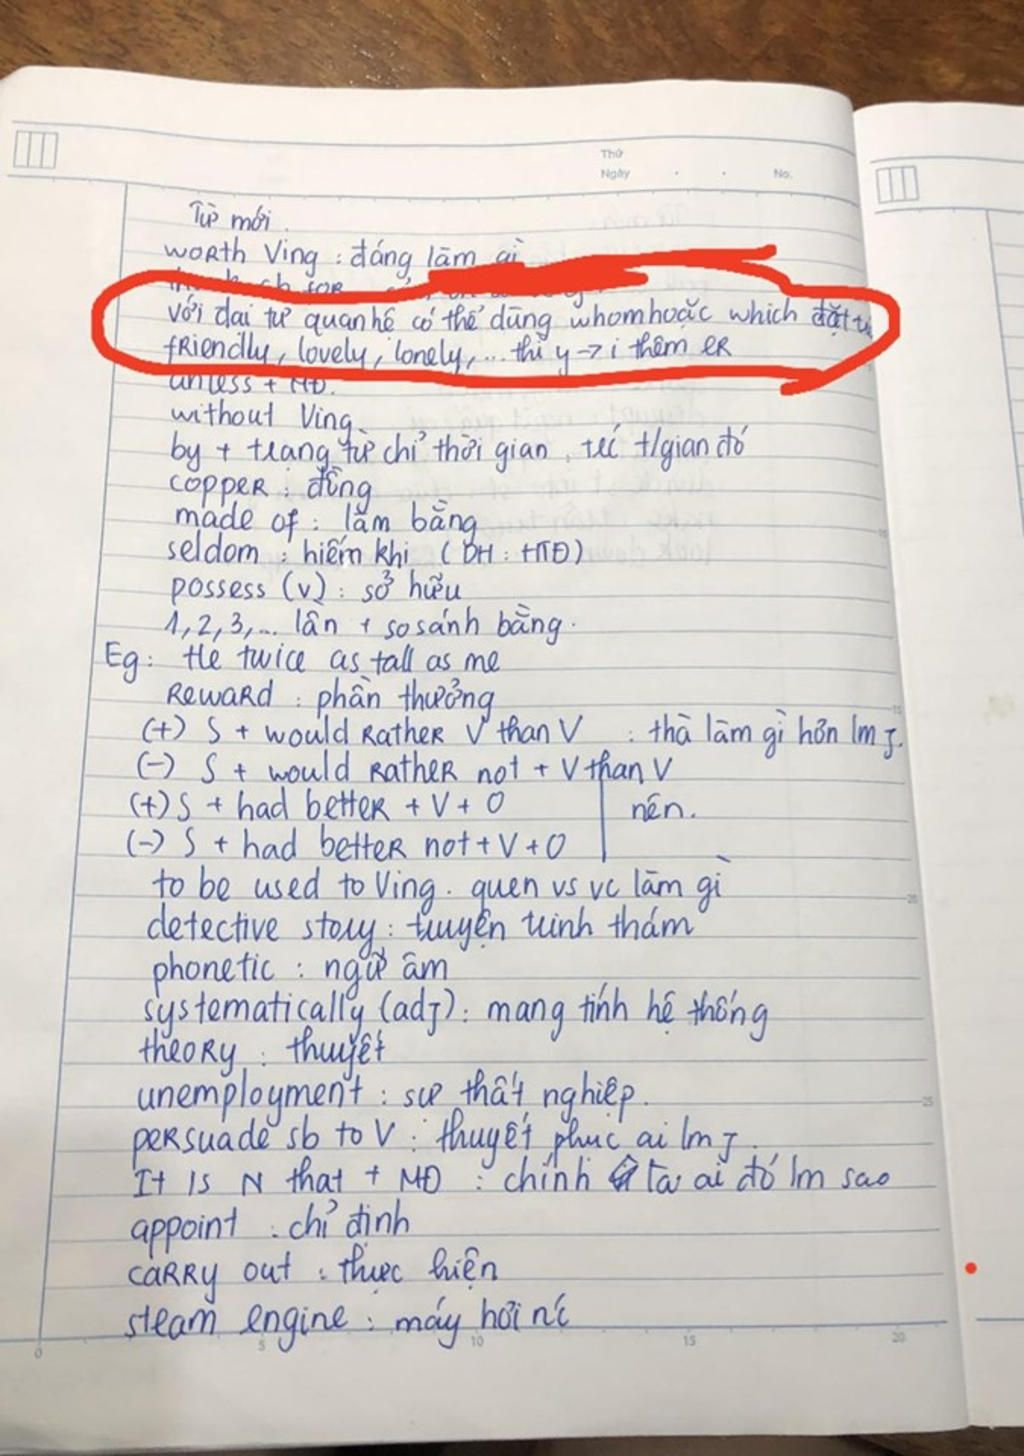 Thứ
Ngày
No.
Từ mới.
worth Ving : đáng làm gì
for
Với đại từ quan hệ có thể dùng whom hoặc which đặt
friendly, lovely, lonely, ... thì y → i thêm er
unless + MĐ.
without Ving
by + trạng từ chỉ thời gian, trc t/gian đó
copper : đồng
made of : làm bằng
seldom : hiếm khi ( DH : HTĐ)
possess (v) : sở hữu
1, 2, 3, ... lần + so sánh bằng.
Eg : He twice as tall as me
Reward : phần thưởng
(+) S + would rather V than V : thà làm gì hơn lm j.
(-) S + would rather not + V than V
(+) S + had better + V + O nên.
(-) S + had better not + V + O
to be used to Ving. quen vs vc làm gì
detective story : truyện trinh thám
phonetic : ngữ âm
systematically (adj) : mang tính hệ thống
theory : thuyết
unemployment : sự thất nghiệp.
persuade sb to V : thuyết phục ai lm j.
It is N that + MĐ : chính là ai đó lm sao
appoint : chỉ định
carry out : thực hiện
steam engine : máy hơi nc
0 5 10 15 20